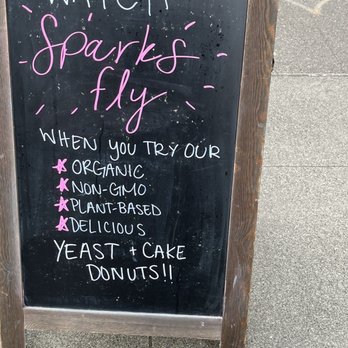 WATCH
Sparks
fly
WHEN YOU TRY OUR
ORGANIC
NON-GMO
PLANT-BASED
DELICIOUS
YEAST + CAKE
DONUTS!!